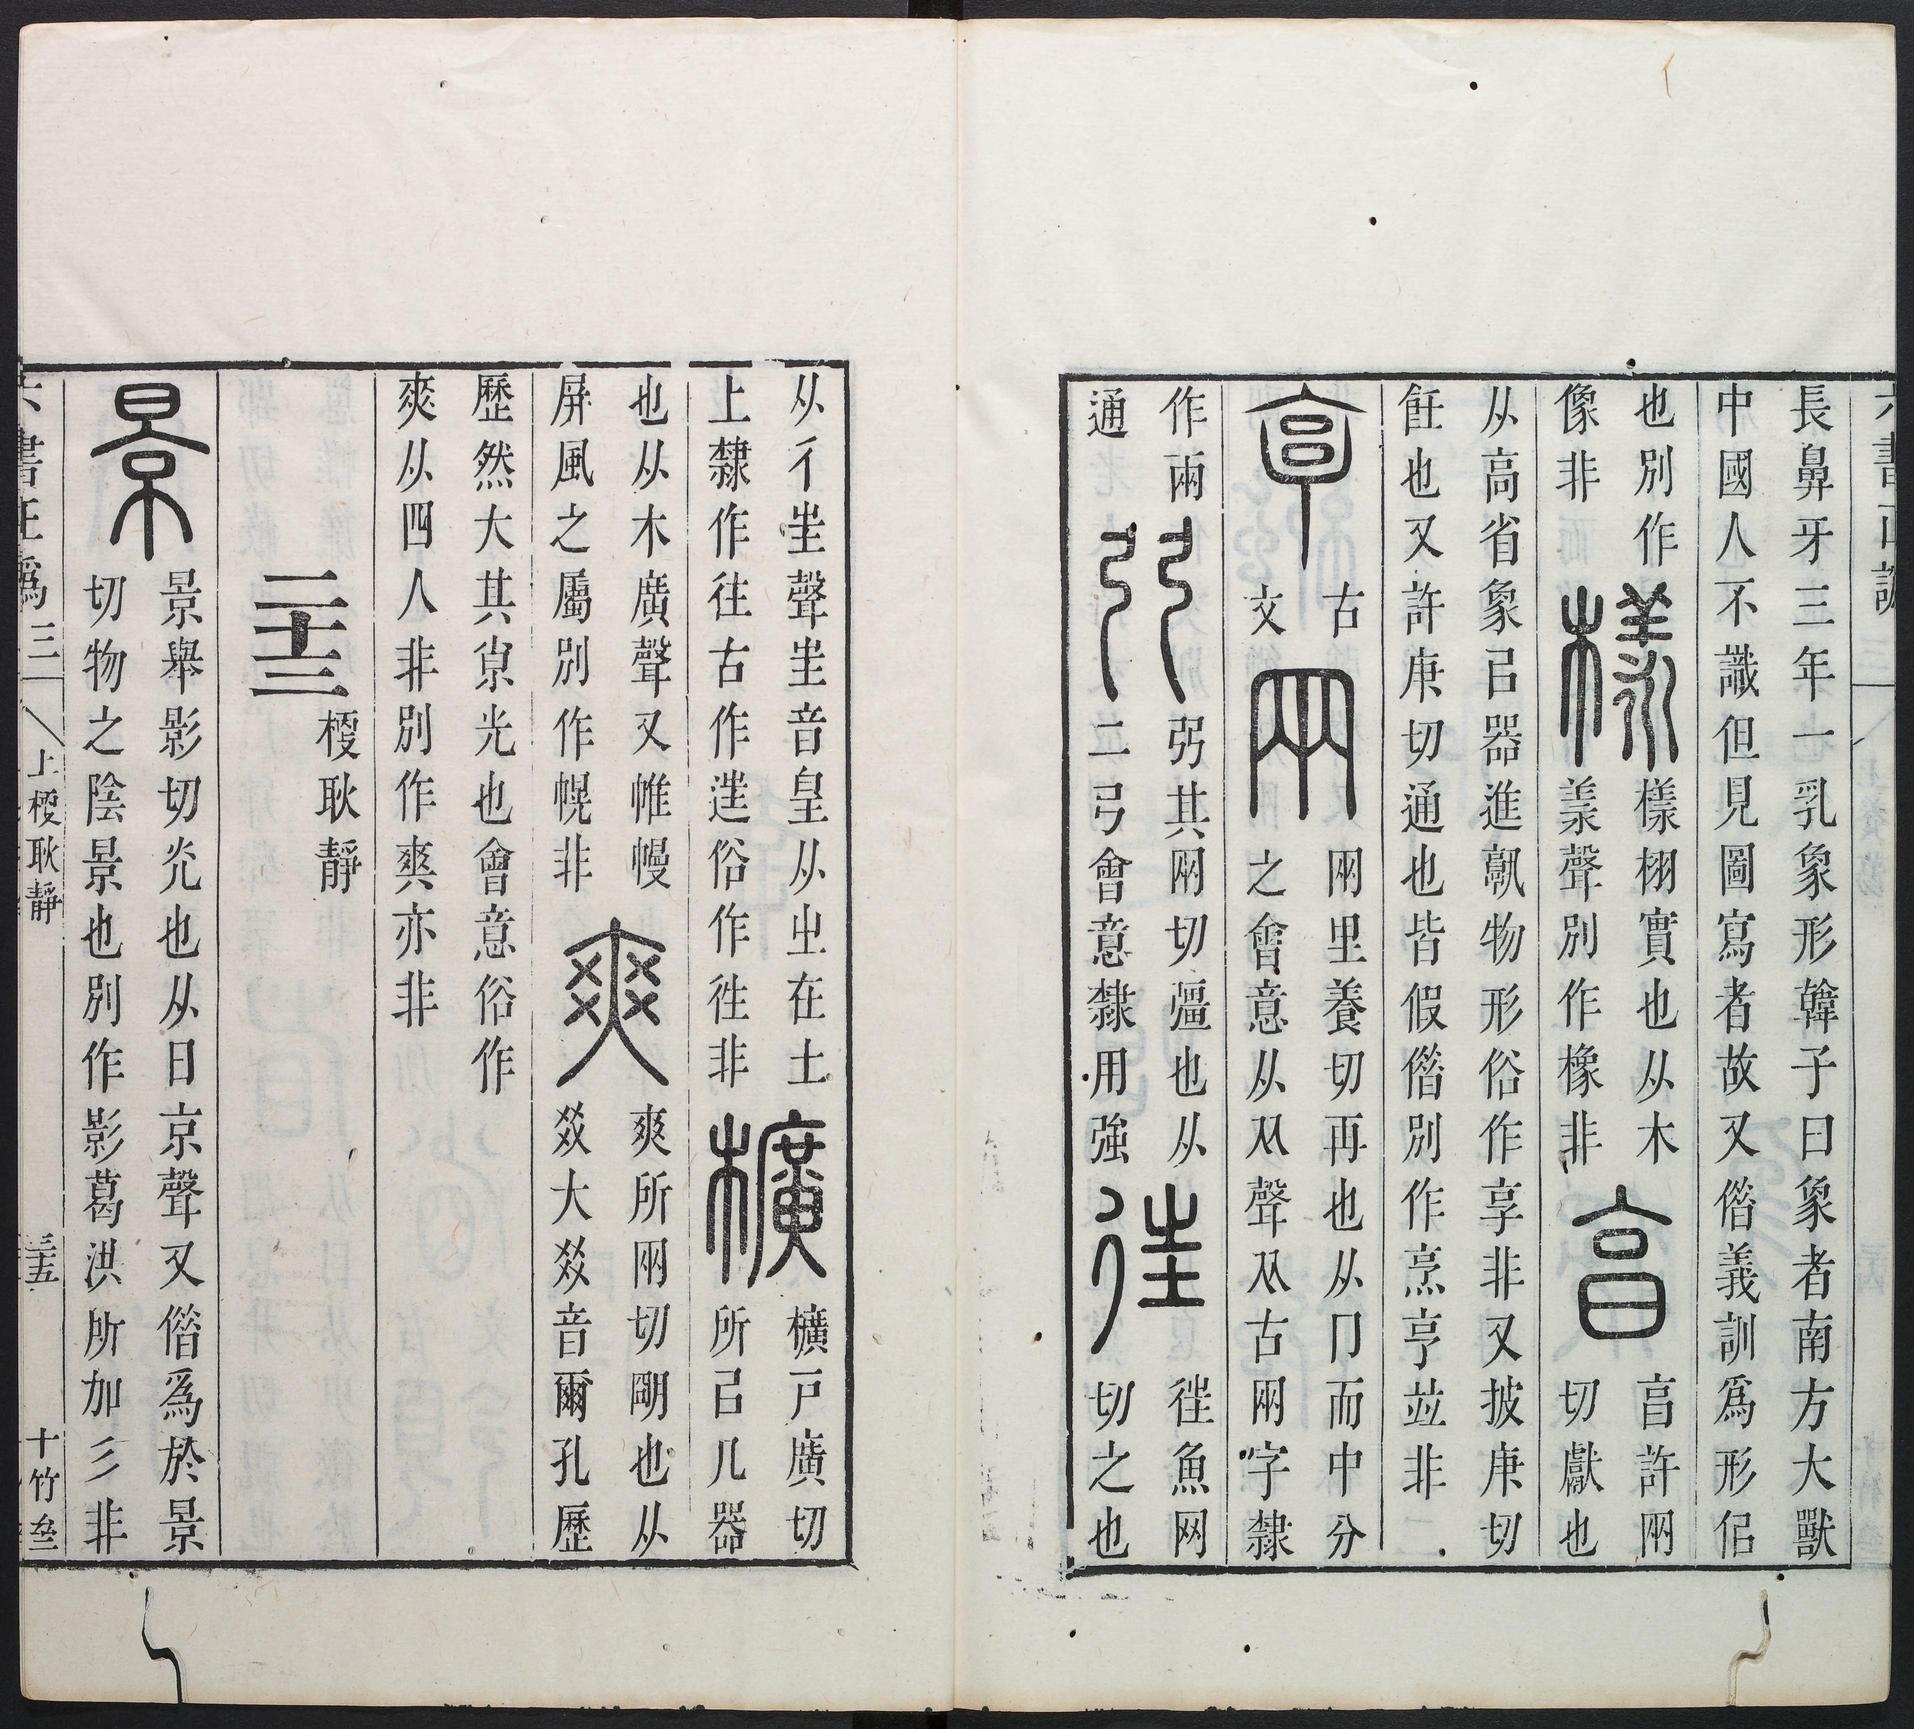 六書正譌
長鼻牙三年一乳象形韓子曰象者南方大獸
中國人不識但見圖寫者故又偺義訓爲形佀
也別作
像非
樣
樣栩實也从木
羕聲別作橡非
亯
亯許㒳
切獻也
从高省象㠯器進𩱧物形俗作享非又披庚切
飪也又許庚切通也皆假偺別作烹亨竝非
古
文
㒳
㒳里養切再也从冂而中分
之會意从从聲从古㒳字隸
作兩
通
弜
弜其㒳切彊也从
二弓會意隸用強
徃
徃魚网
切之也
从彳㞷聲㞷音皇从㞢在土
上隸作往古作𨓹俗作徃非
櫎
櫎戸廣切
所㠯几器
也从木廣聲又帷幔
屏風之屬別作幌非
爽
爽所㒳切朙也从
㸚大㸚音爾孔歷
歷然大其光也會意俗作
爽从四人非別作爽亦非
二十三
梗耿靜
景
景舉影切光也从日京聲又偺爲於景
切物之陰景也別作影葛洪所加彡非
六書正譌三
上梗耿靜
三十五
十竹